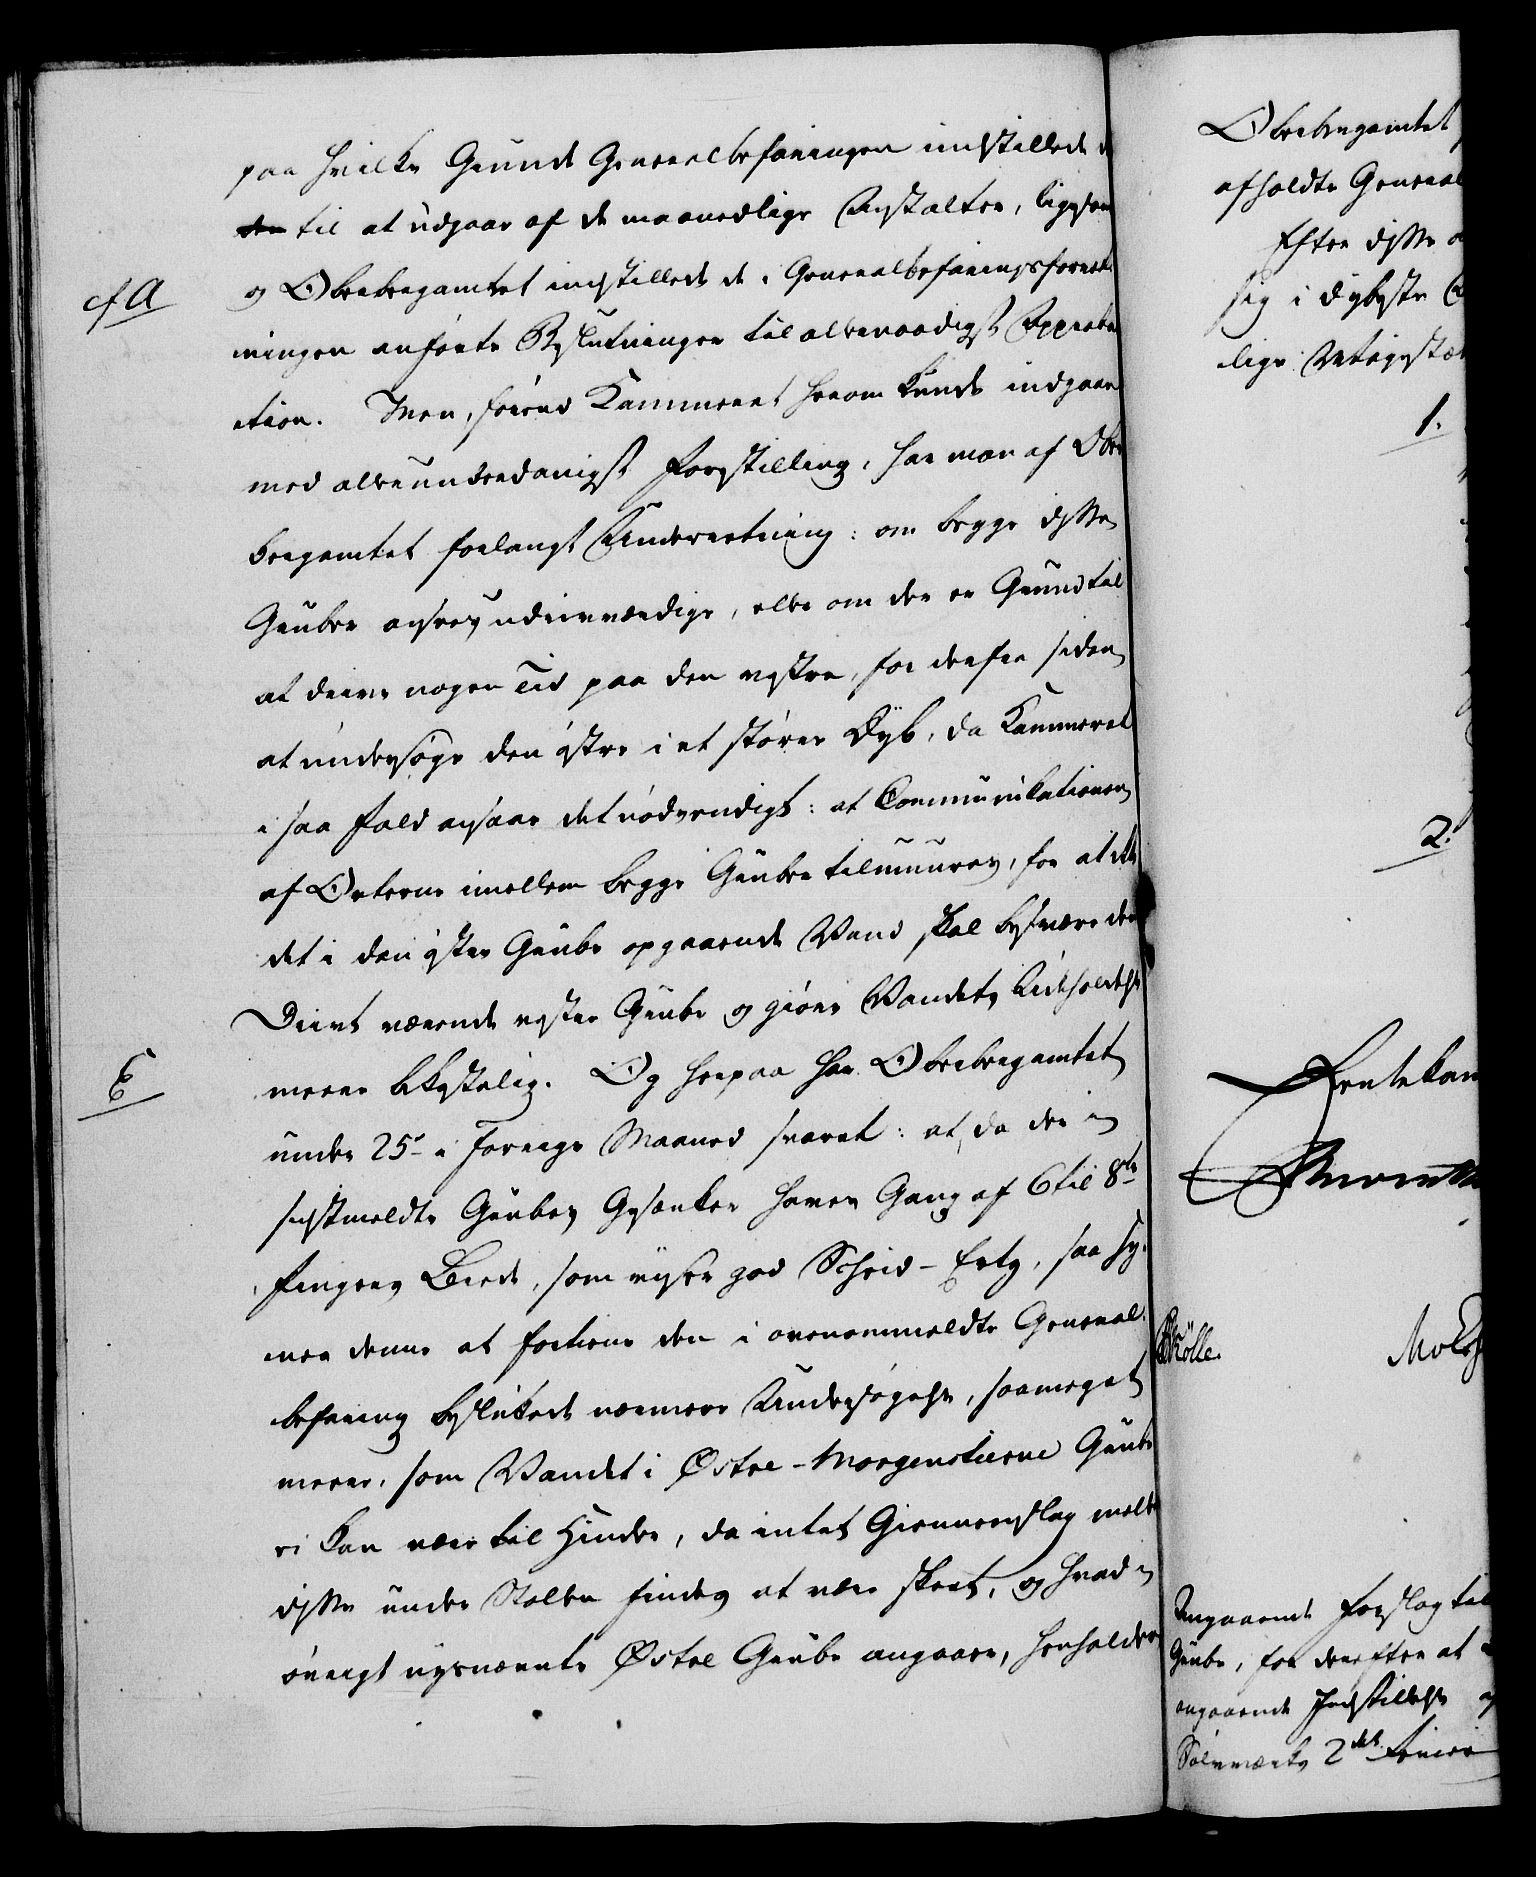 paa hvilke Grunde Generalbefaringen indstillede
til at udgaae af de maanedlige Anstalter, ligesom
cf A
og Oberbergamtet indstillede de i Generalbefaringsforret-
ningen anførte Beslutninger til allernaadigst Approba-
tion. Men, førend Kammeret herom kunde indgaae
med allerunderdanigst Forestilling, har man af Ober-
bergamtet forlangt Underretning: om begge disse
Gruber ansees uddriveværdige, eller om der er Grund til
at drive nogen Tid paa den vestre, for derfra siden
at undersøge den østre i et større Dyb, da Kammeret
i saa Fald ansaae det nødvendigt: at Communicationen
af Orterne imellem begge Gruber tilmuures, for at ikke
det i den østre Grube opgaaende Vand skal besvære den
Drivt værende vestre Grube og giøre Vandets Lidsholdelse
meere bekostelig. Og herpaa har Oberbergamtet
E
under 25de i forrige Maaned svaret: at, da den i
sidstmeldte Grubes Gesænker havende Gang af 6 til 8te
Fingres Brede, som viiser god Scheid-Ertz, saa sy-
nes denne at fortiene den i ovenommeldte General-
befaring besluttede nærmere Undersøgelse, saameget
meere, som Vandet i Østre-Morgenstierne Grube
ei kan være til Hinder, da intet Giennemslag mellem
disse under Stollen findes at være skeet, og hvad
øvrigt nysnævnte Østre Grube angaaer, henholder
Oberbergamtet
afholdte General
Efter disse
sig i dybeste
lige
1.
2.
Rentekam
Skölle.
Angaaende Forslag til
Grube, for derefter at
angaaende Indstillelse
Sølvværks 2det